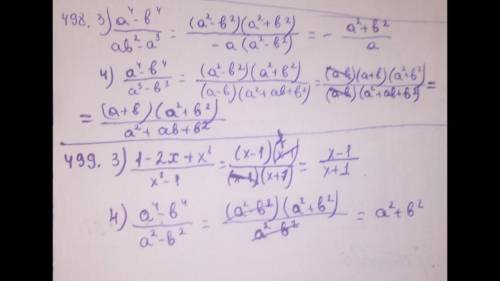 498. 3) (a⁴-b⁴)/(ab²-a³) = ((a²-b²)(a²+b²))/(-a(a²-b²)) = - (a²+b²)/a
4) (a⁴-b⁴)/(a³-b³) = ((a²-b²)(a²+b²))/((a-b)(a²+ab+b²)) = ((a-b)(a+b)(a²+b²))/((a-b)(a²+ab+b²)) =
= ((a+b)(a²+b²))/(a²+ab+b²)
499. 3) (1-2x+x²)/(x²-1) = ((x-1)(x-1))/((x-1)(x+1)) = (x-1)/(x+1)
4) (a⁴-b⁴)/(a²-b²) = ((a²-b²)(a²+b²))/(a²-b²) = a²+b²